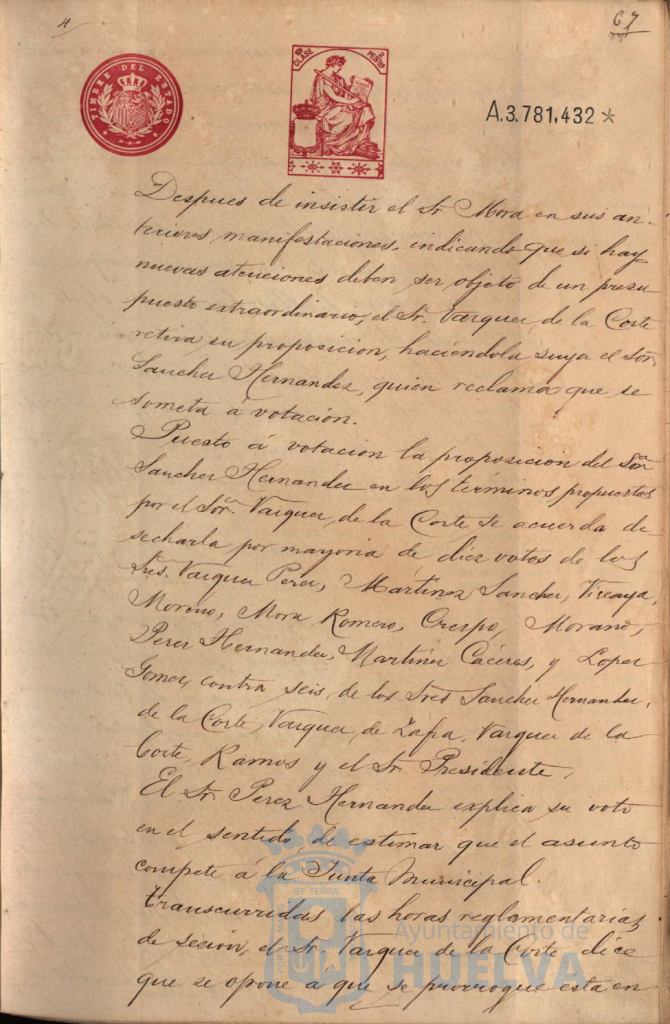 4
67
TIMBRE DEL ESTADO
CLASE
PESETAS
A.3.781,432*
Despues de insistir el Sr Mora en sus an-
teriores manifestaciones, indicando que si hay
nuevas atenciones deben ser objeto de un presu
puesto extraordinario, el Sr. Vazquez de la Corte
retira su proposicion, haciéndola suya el Sor.
Sanchez Hernandez, quien reclama que se
someta á votación.
Puesto á votacion la proposicion del Sor
Sanchez Hernandez en los terminos propuestos
por el Sor. Vazquez de la Corte se acuerda de
secharla por mayoria de diez votos de los
Sres. Vazquez Perez, Martinez Sanchez, Vizcaya,
Moreno, Mora Romero, Crespo, Morano,
Perez Hernandez, Martinez Cáceres, y Lopez
Gomez, contra seis, de los Sres Sanchez Hernandez,
de la Corte, Vazquez de Zafra, Vazquez de la
Corte, Ramos y el Sr. Presidente.
El Sr. Perez Hernandez explica su voto
en el sentido de estimar que el asunto
compete á la Junta Municipal.
Transcurridas las horas reglamentarias
de secion, el Sr. Vazquez de la Corte dice
que se opone á que se prorrogue esta en
Ayuntamiento de
HUELVA